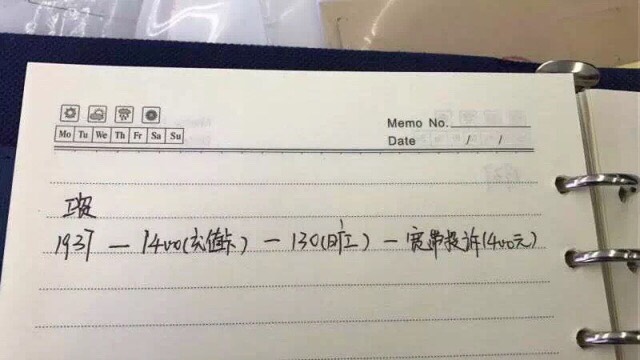 Mo Tu We Th Fr Sa Su
Memo No.
Date / /
工资
1937 — 1400(充值卡) — 130(旷工) — 宽带投诉(400元)